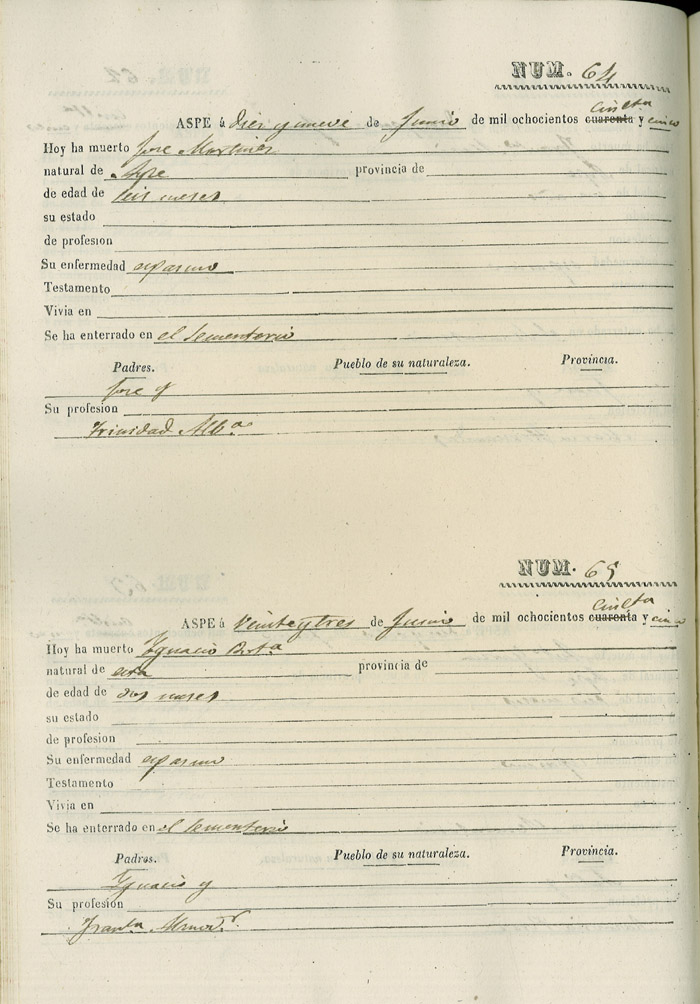 NUM. 64
ASPE á Diez y nueve de Junio de mil ochocientos cuarenta Cincta y cinco
Hoy ha muerto Jose Martinez
natural de Aspe provincia de
de edad de seis meses
su estado
de profesion
Su enfermedad espasmo
Testamento
Vivia en
Se ha enterrado en el sementerio
Padres. Pueblo de su naturaleza. Provincia.
Jose y
Su profesion
Trinidad Alb.a
NUM. 65
ASPE á Veinte y tres de Junio de mil ochocientos cuarenta Cincta y cinco
Hoy ha muerto Ygnacio
natural de esta provincia de
de edad de dos meses
su estado
de profesion
Su enfermedad espasmo
Testamento
Vivia en
Se ha enterrado en el sementerio
Padres. Pueblo de su naturaleza. Provincia.
Ygnacio y
Su profesion
Fran.ca